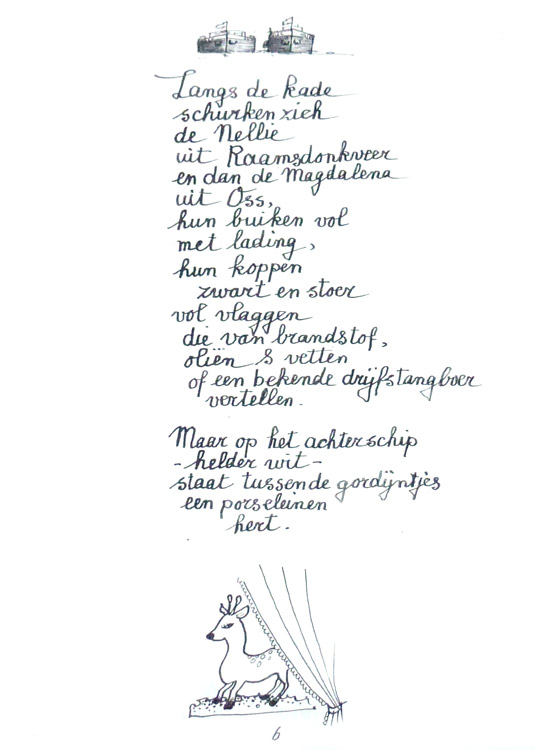 Langs de kade
schurken zich
de Nellie
uit Raamsdonkveer
en dan de Magdalena
uit Oss,
hun buiken vol
met lading,
hun koppen
zwart en stoer
vol vlaggen
die van brandstof,
oliën & vetten
of een bekende drijfstangboer
vertellen.
Maar op het achterschip
-helder wit-
staat tussen de gordijntjes
een porseleinen
hert.
6